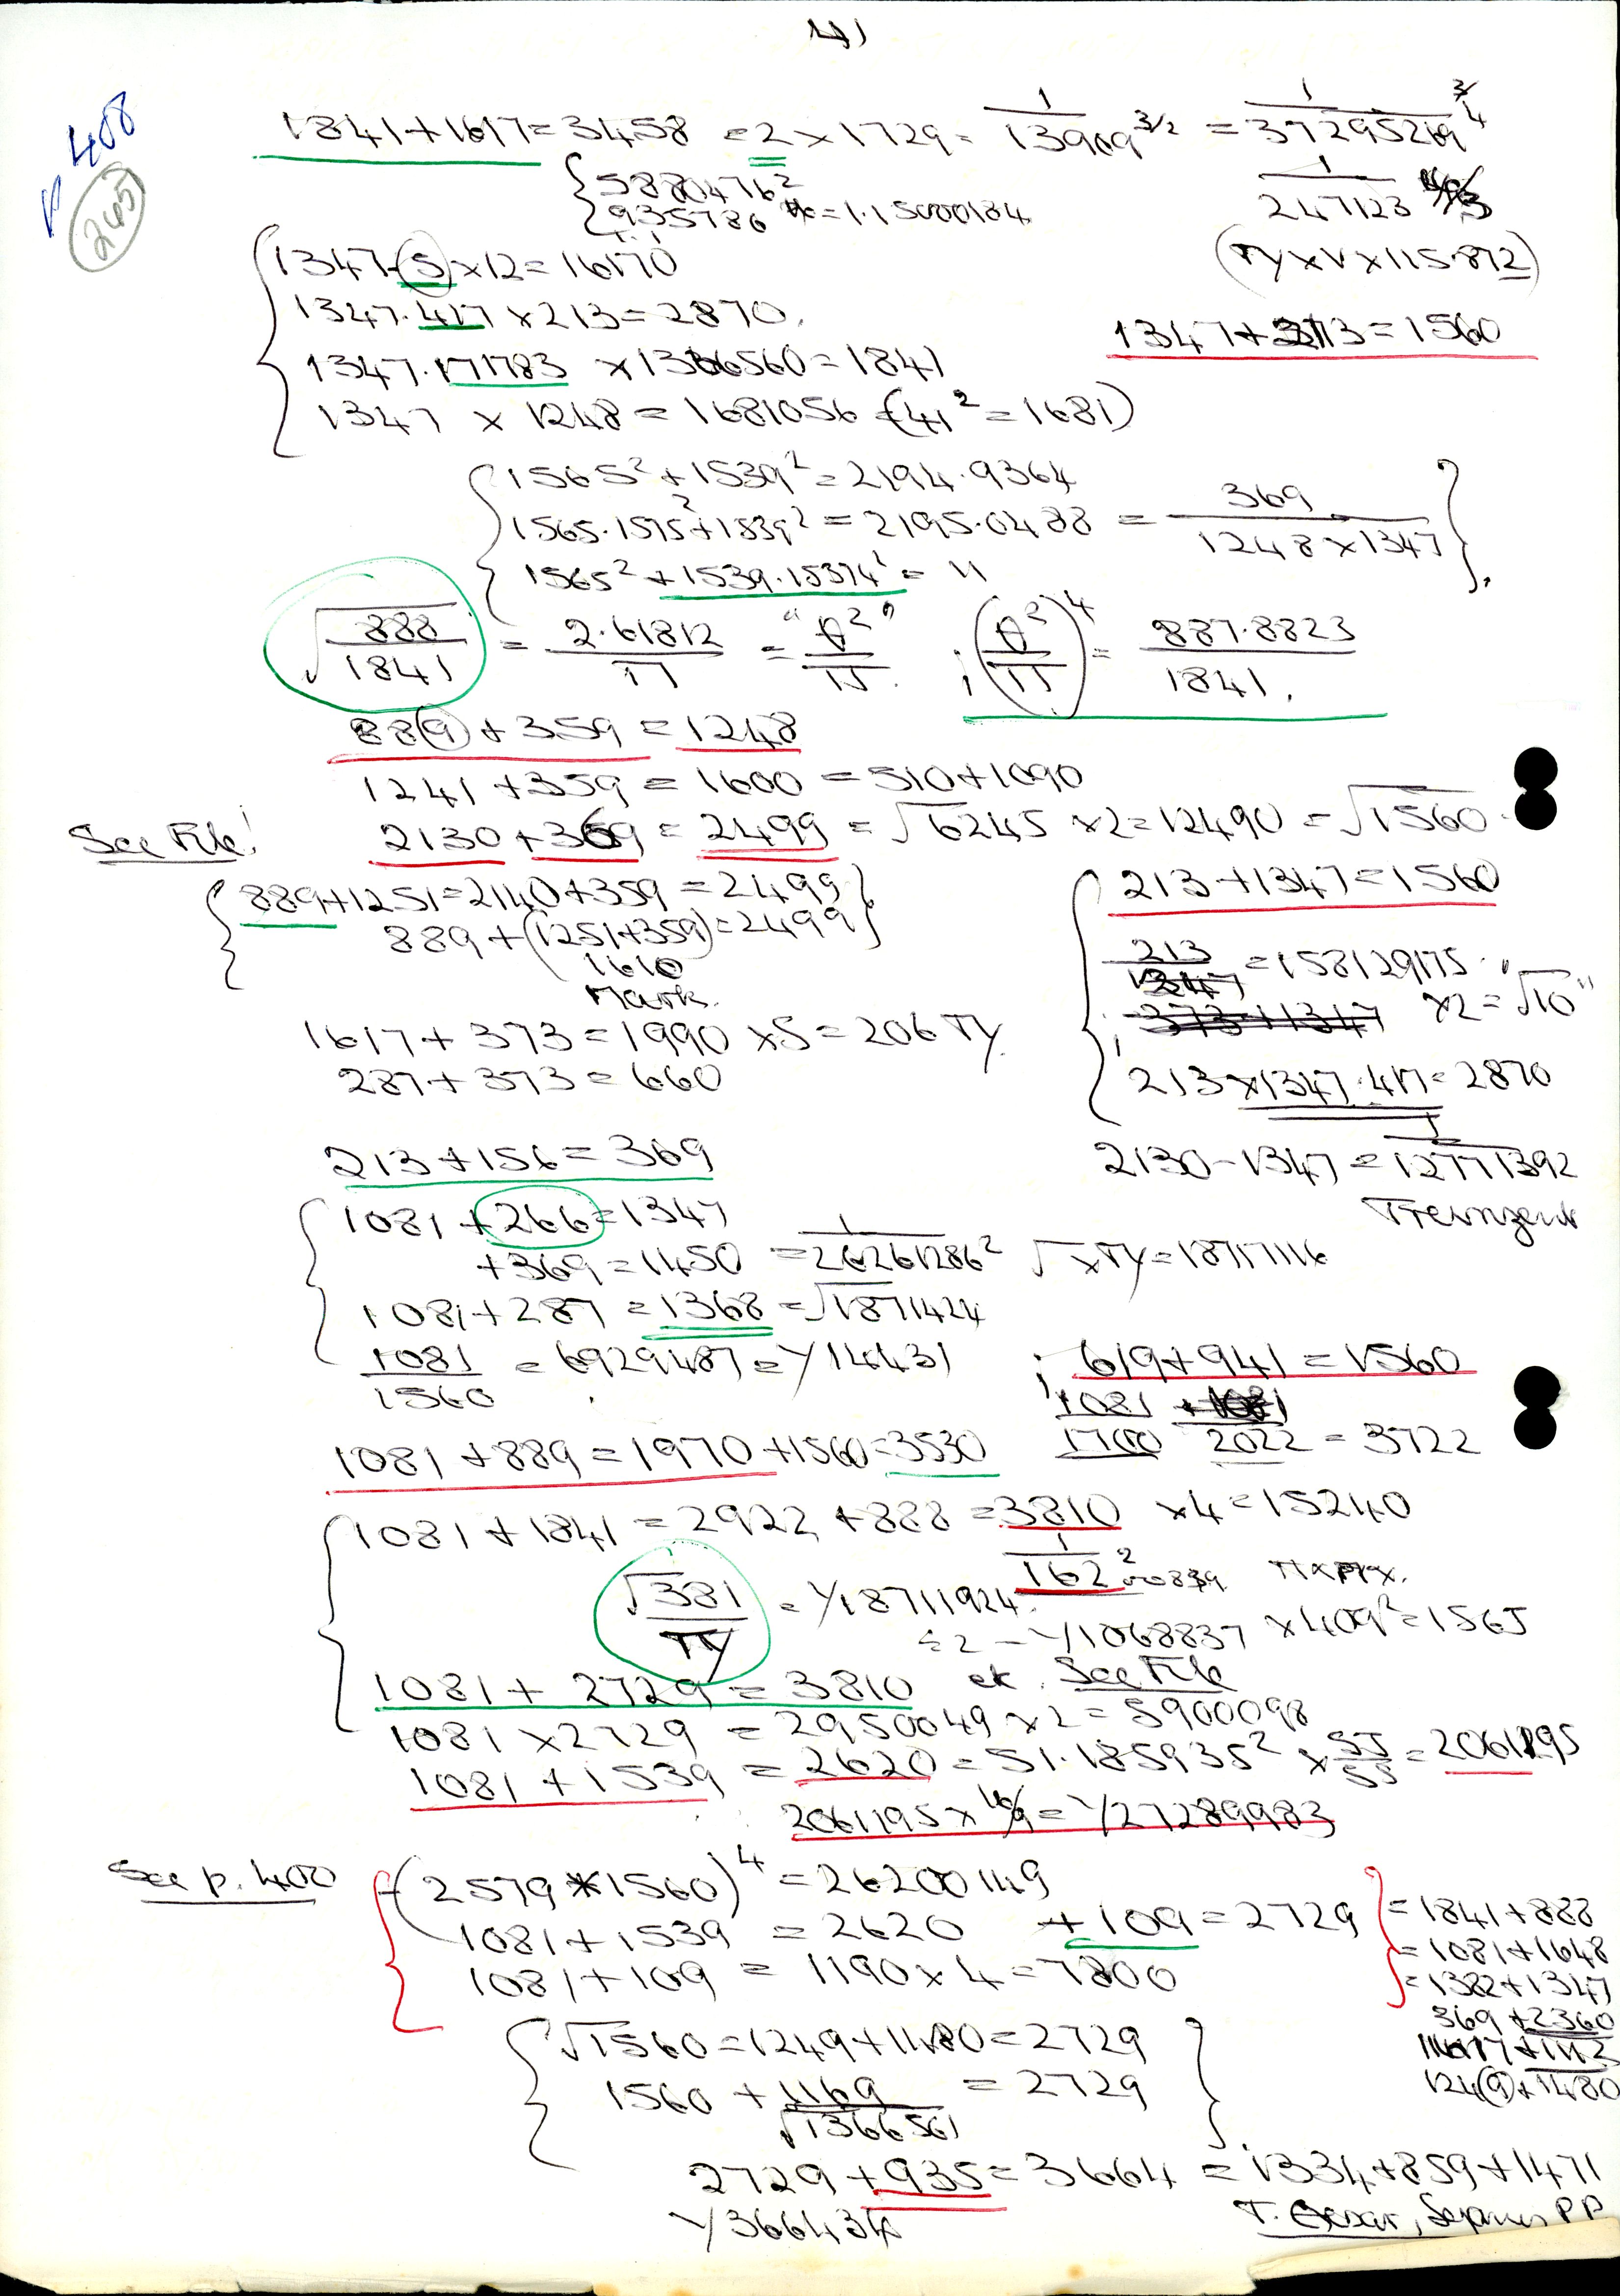 p 408
265
1841+1617=3458 =2×1729= 1/13909^3/2 = 1/37295269^3/4
{5880476²
{935786 =1.15000184
1/247123
(πy×V×115.872)
1347.(5)×12=16170
1347.417×213=2870.
1347+213=1560
1347.171783 ×1366560=1841
1347 × 1248=1681056 (41²=1681)
1565²+1539²=2194.9364
1565.1575²+1839²=2195.0488 = 369/1248×1347
1565²+1539.15374²= 11
√888/1841 = 2.61812/π = "θ²"/π ; (θ²/π)⁴ = 887.8823/1841.
88(9)+359=1248
1241+359=1600=510+1090
See File! 2130+369=2499=√6245 ×2=12490=√1560.
889+1251=2140+359=2499
889+(1251+359)=2499
1610
Mark.
213+1347=1560
213/1347 =158129175 ×2="√10"
373+1347
1617+373=1990 ×5=206 πy
287+373=660
213×1347.417=2870
213+156=369
2130-1347=1/12771392
1081+266=1347
+369=1450 = 1/26261286² √×πy=18717116
1081+287=1368=√1871424
1081/1560 =6929487=y/14431 ; 619+941=1560
1081+889=1970+1560=3530
1081/1700 1081/2022 =3722
1081+1841=2922+888=3810 ×4=15240
√381/πy =y/18711924. 1/162²
÷2=y/1068837 ×409²=1565
1081+2729=3810 etc. See File
1081×2729=2950049×2=5900098
1081+1539=2620=51.185935² × 55/55 =2061195
2061195×10/9=y/27289983
See p. 400
(2579*1560)⁴=26200149
1081+1539=2620 +109=2729 =1841+888
1081+109=1190×4=7800 =1081+1648
=1382+1347
369+2360
1617+1112
124(9)+1480
√1560=1249+1180=2729
1560+1169=2729
√1366561
2729+935=3664=1334+859+1471
y/366434